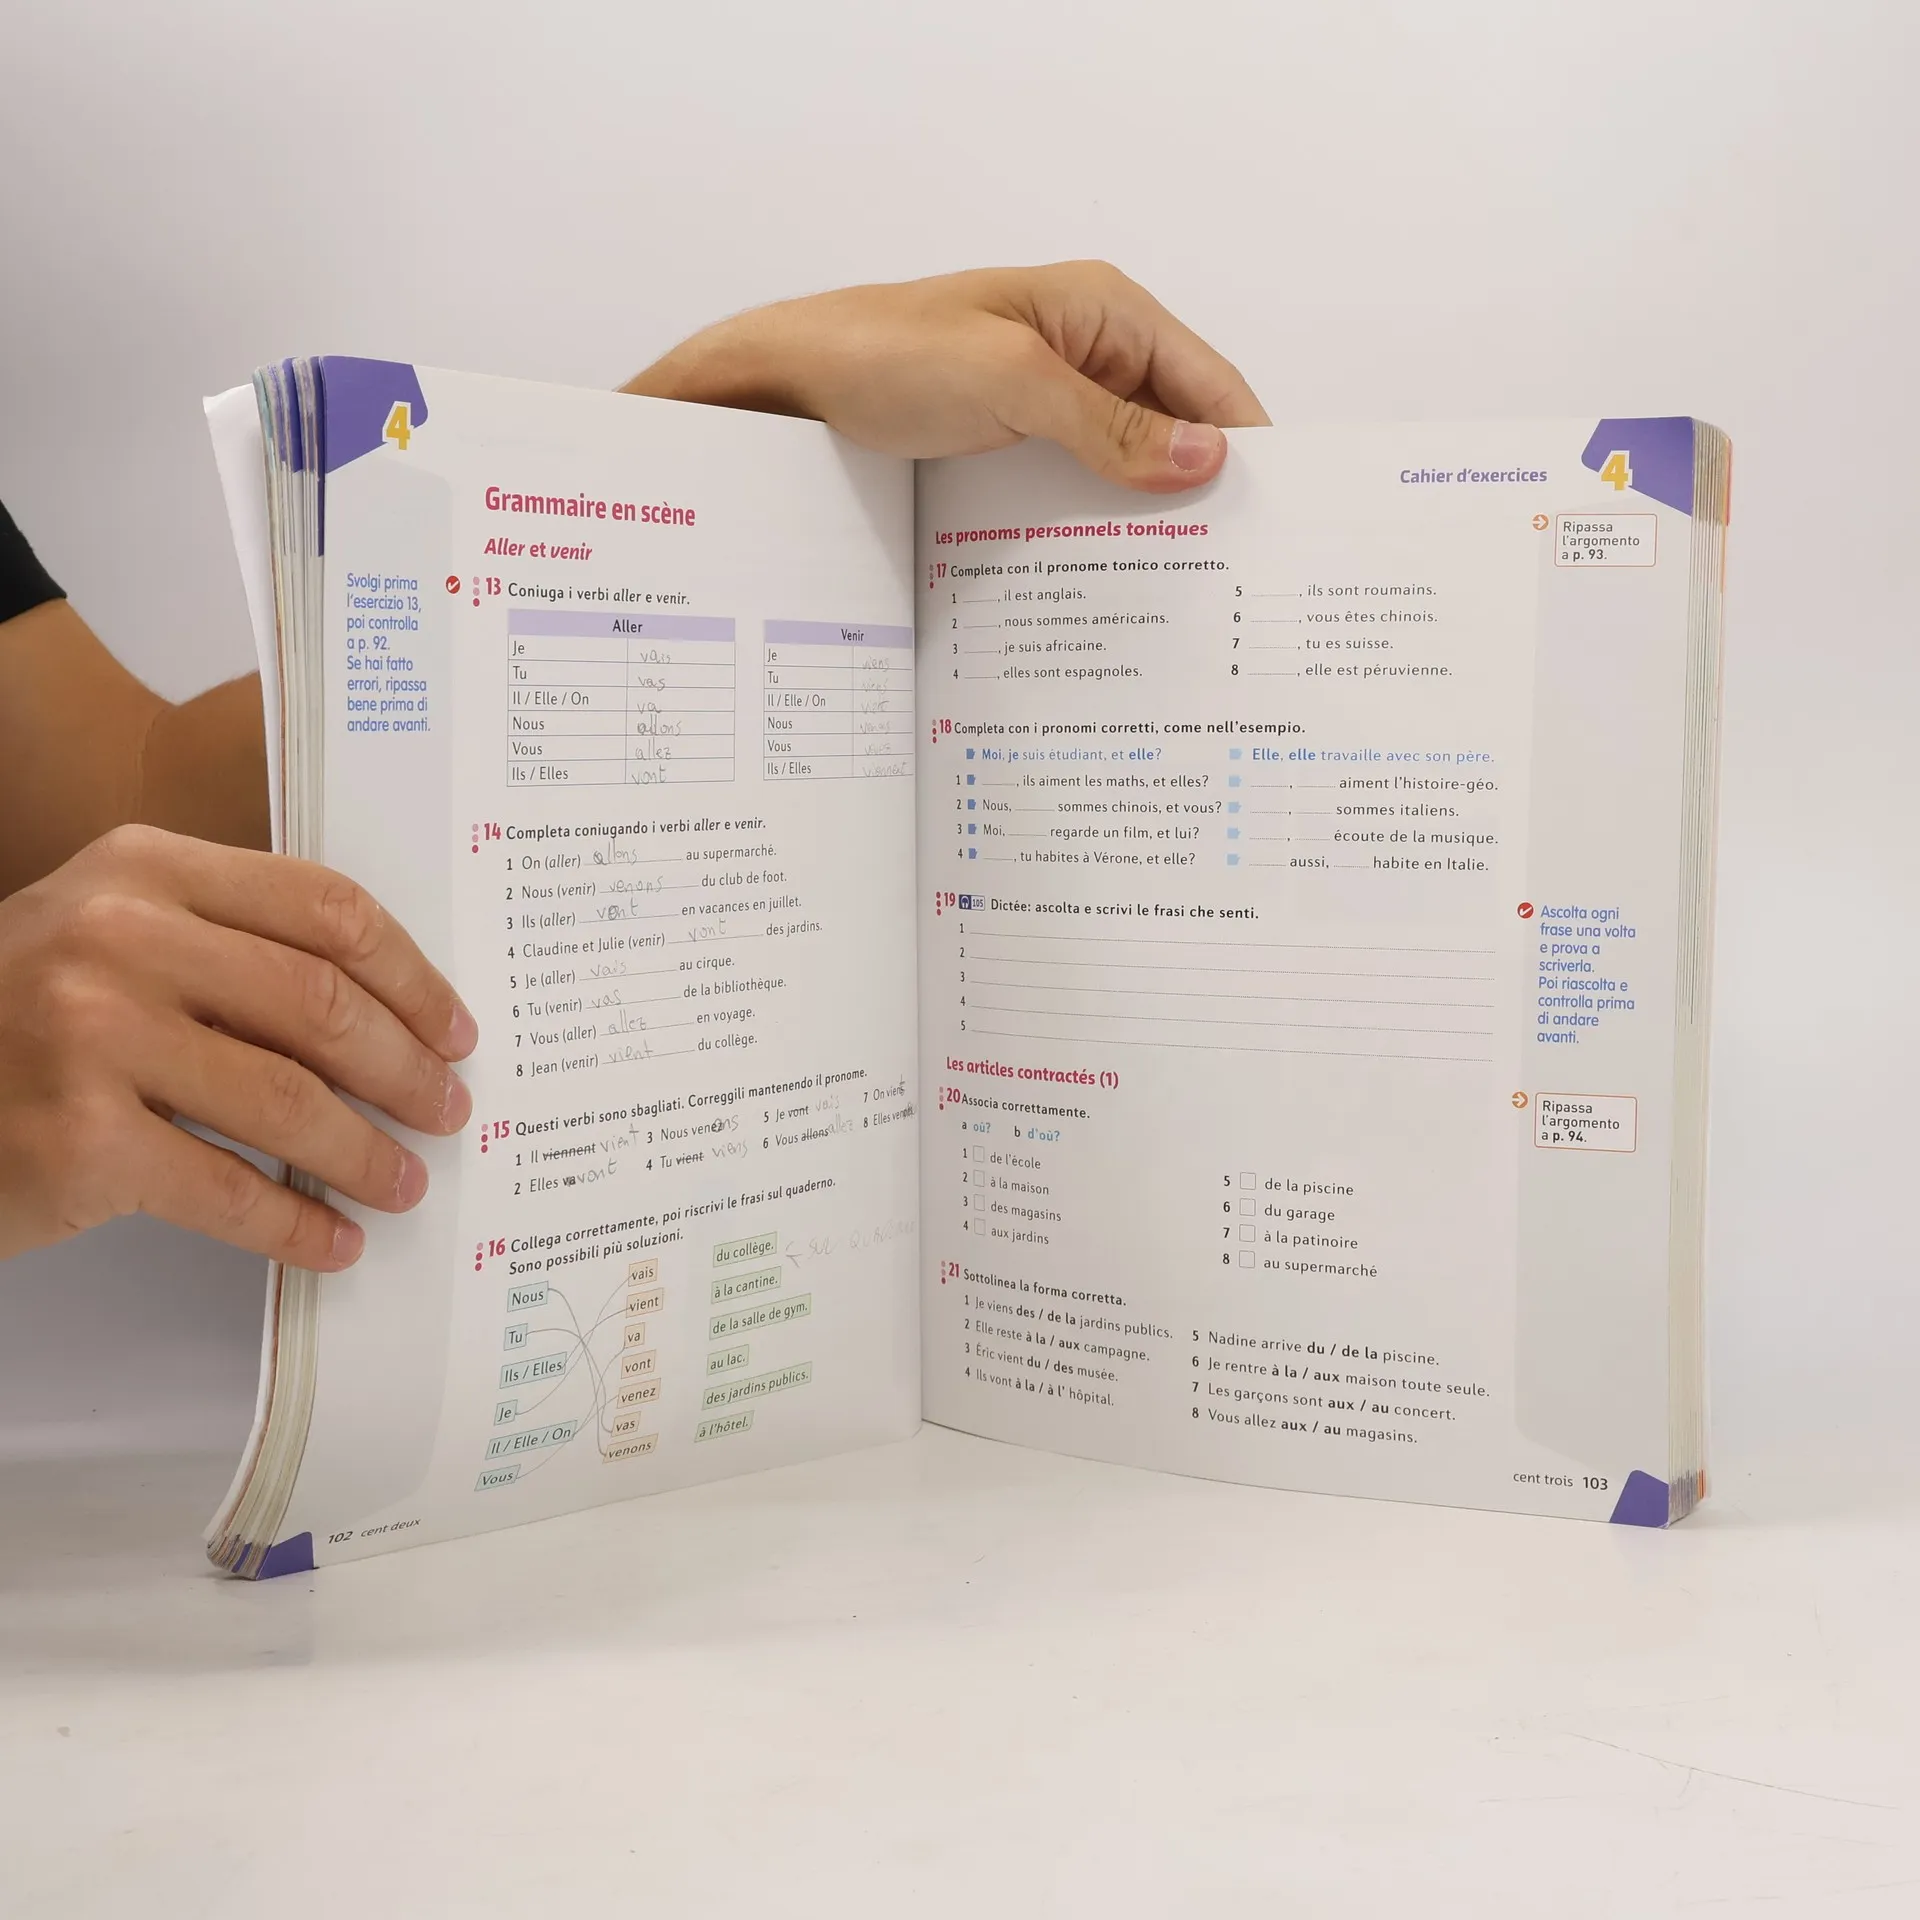 4
Grammaire en scène
Aller et venir
Svolgi prima
l'esercizio 13,
poi controlla
a p. 92.
Se hai fatto
errori, ripassa
bene prima di
andare avanti.
13 Coniuga i verbi aller e venir.
Aller
Je vais
Tu vas
Il / Elle / On va
Nous allons
Vous allez
Ils / Elles vont
Venir
Je viens
Tu
Il / Elle / On
Nous
Vous
Ils / Elles viennent
14 Completa coniugando i verbi aller e venir.
1 On (aller) allons au supermarché.
2 Nous (venir) venons du club de foot.
3 Ils (aller) vont en vacances en juillet.
4 Claudine et Julie (venir) vont des jardins.
5 Je (aller) vais au cirque.
6 Tu (venir) vas de la bibliothèque.
7 Vous (aller) allez en voyage.
8 Jean (venir) vient du collège.
15 Questi verbi sono sbagliati. Correggili mantenendo il pronome.
1 Il viennent vient
2 Elles va vont
3 Nous
4 Tu vient viens
5 Je vont vais
6 Vous allons allez
7 On
8 Elles
16 Collega correttamente, poi riscrivi le frasi sul quaderno.
Sono possibili più soluzioni.
Nous
Tu
Ils / Elles
Je
Il / Elle / On
Vous
vais
vient
va
vont
venez
vas
venons
du collège.
SUL
à la cantine.
de la salle de gym.
au lac.
des jardins publics.
à l'hôtel.
102 cent deux
Cahier d'exercices 4
Les pronoms personnels toniques
Ripassa
l'argomento
a p. 93.
17 Completa con il pronome tonico corretto.
1 ______, il est anglais.
2 ______, nous sommes américains.
3 ______, je suis africaine.
4 ______, elles sont espagnoles.
5 ______, ils sont roumains.
6 ______, vous êtes chinois.
7 ______, tu es suisse.
8 ______, elle est péruvienne.
18 Completa con i pronomi corretti, come nell'esempio.
Moi, je suis étudiant, et elle? Elle, elle travaille avec son père.
1 ______, ils aiment les maths, et elles? ______, ______ aiment l'histoire-géo.
2 Nous, ______ sommes chinois, et vous? ______, ______ sommes italiens.
3 Moi, ______ regarde un film, et lui? ______, ______ écoute de la musique.
4 ______, tu habites à Vérone, et elle? ______ aussi, ______ habite en Italie.
19 105 Dictée: ascolta e scrivi le frasi che senti.
1
2
3
4
5
Ascolta ogni
frase una volta
e prova a
scriverla.
Poi riascolta e
controlla prima
di andare
avanti.
Les articles contractés (1)
Ripassa
l'argomento
a p. 94.
20 Associa correttamente.
a où? b d'où?
1 de l'école
2 à la maison
3 des magasins
4 aux jardins
5 de la piscine
6 du garage
7 à la patinoire
8 au supermarché
21 Sottolinea la forma corretta.
1 Je viens des / de la jardins publics.
2 Elle reste à la / aux campagne.
3 Éric vient du / des musée.
4 Ils vont à la / à l' hôpital.
5 Nadine arrive du / de la piscine.
6 Je rentre à la / aux maison toute seule.
7 Les garçons sont aux / au concert.
8 Vous allez aux / au magasins.
cent trois 103